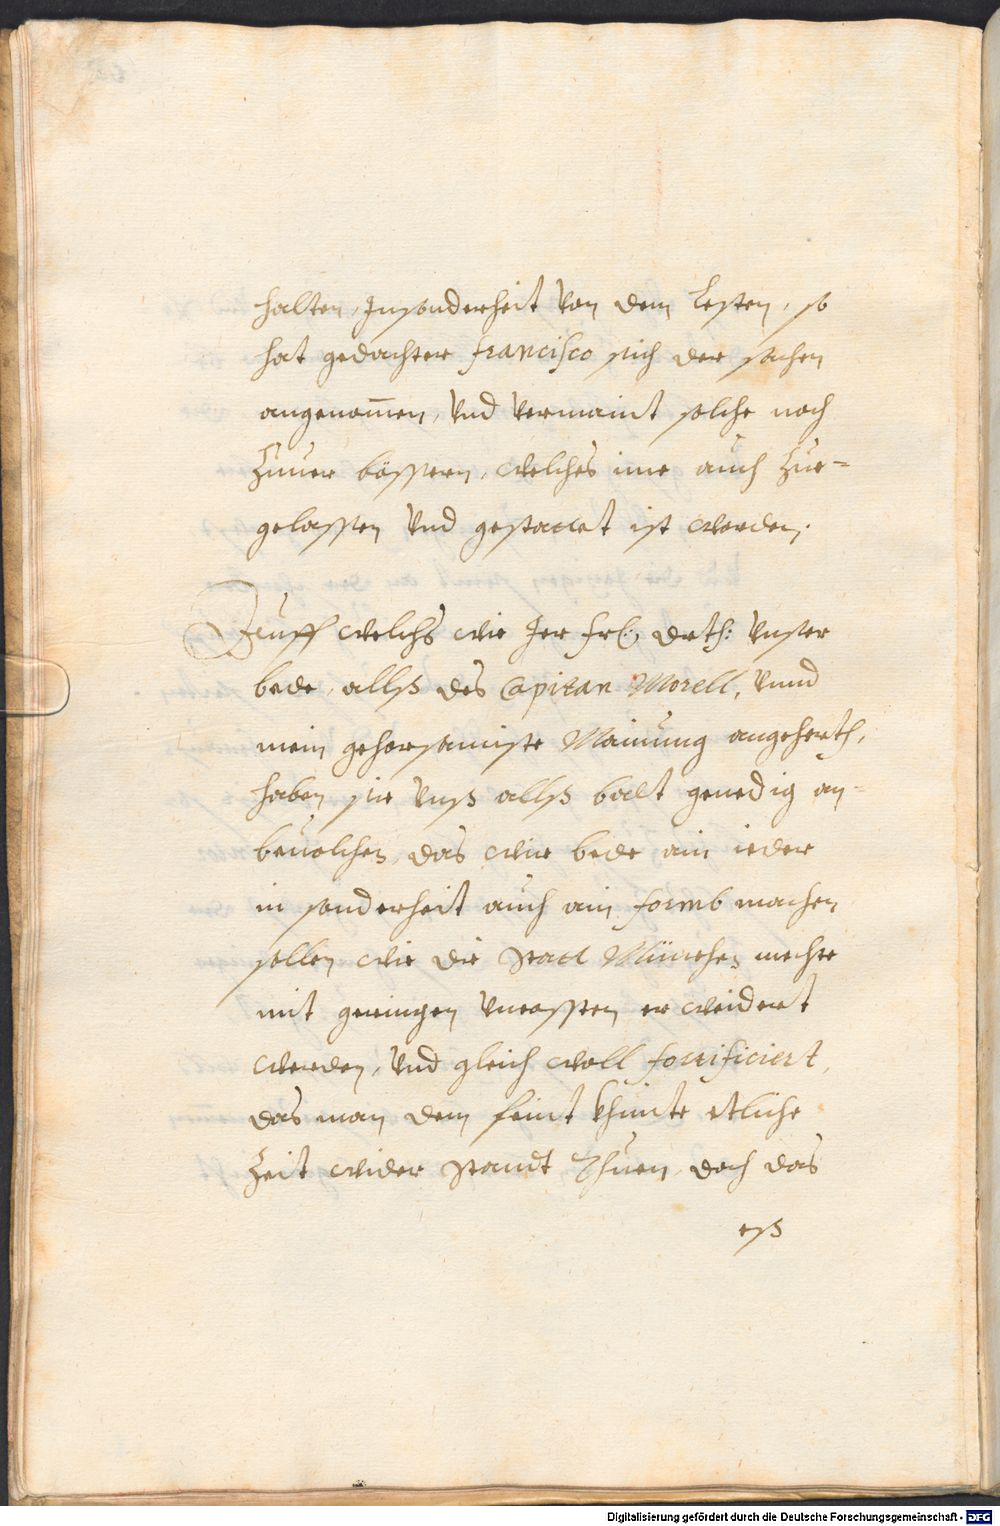 halten, Insonderheit von dem Lesten, so
hat gedachter Francisco sich der sachen
angenomen, vnd vermaint solche noch
Zuuer bössern, welches ime auch Zue-
gelassen vnd gestattet ist worden.
Auff welchs wie Ier frl: drth: vnser
bede, allß des Capitan Morell, vnnd
mein gehorsamiste Mainung angehertt,
haben sie vnß allß balt genedig an-
beuolchen, das wir bede ain ieder
in sonderheit auch ain formb machen
sollen wie die Statt München mechte
mit geringen vncossten erweidert
werden, vnd gleich woll fortificiert,
das man dem feint khinte etliche
Zeit wider standt Thuen, doch das
eß
Digitalisierung gefördert durch die Deutsche Forschungsgemeinschaft - DFG